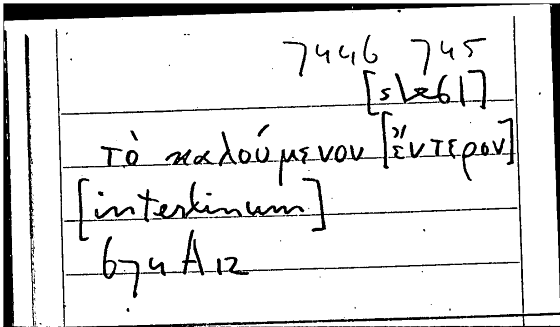 7446 745
τὸ καλούμενον [ἔντερον]
[intestinum]
674 A12